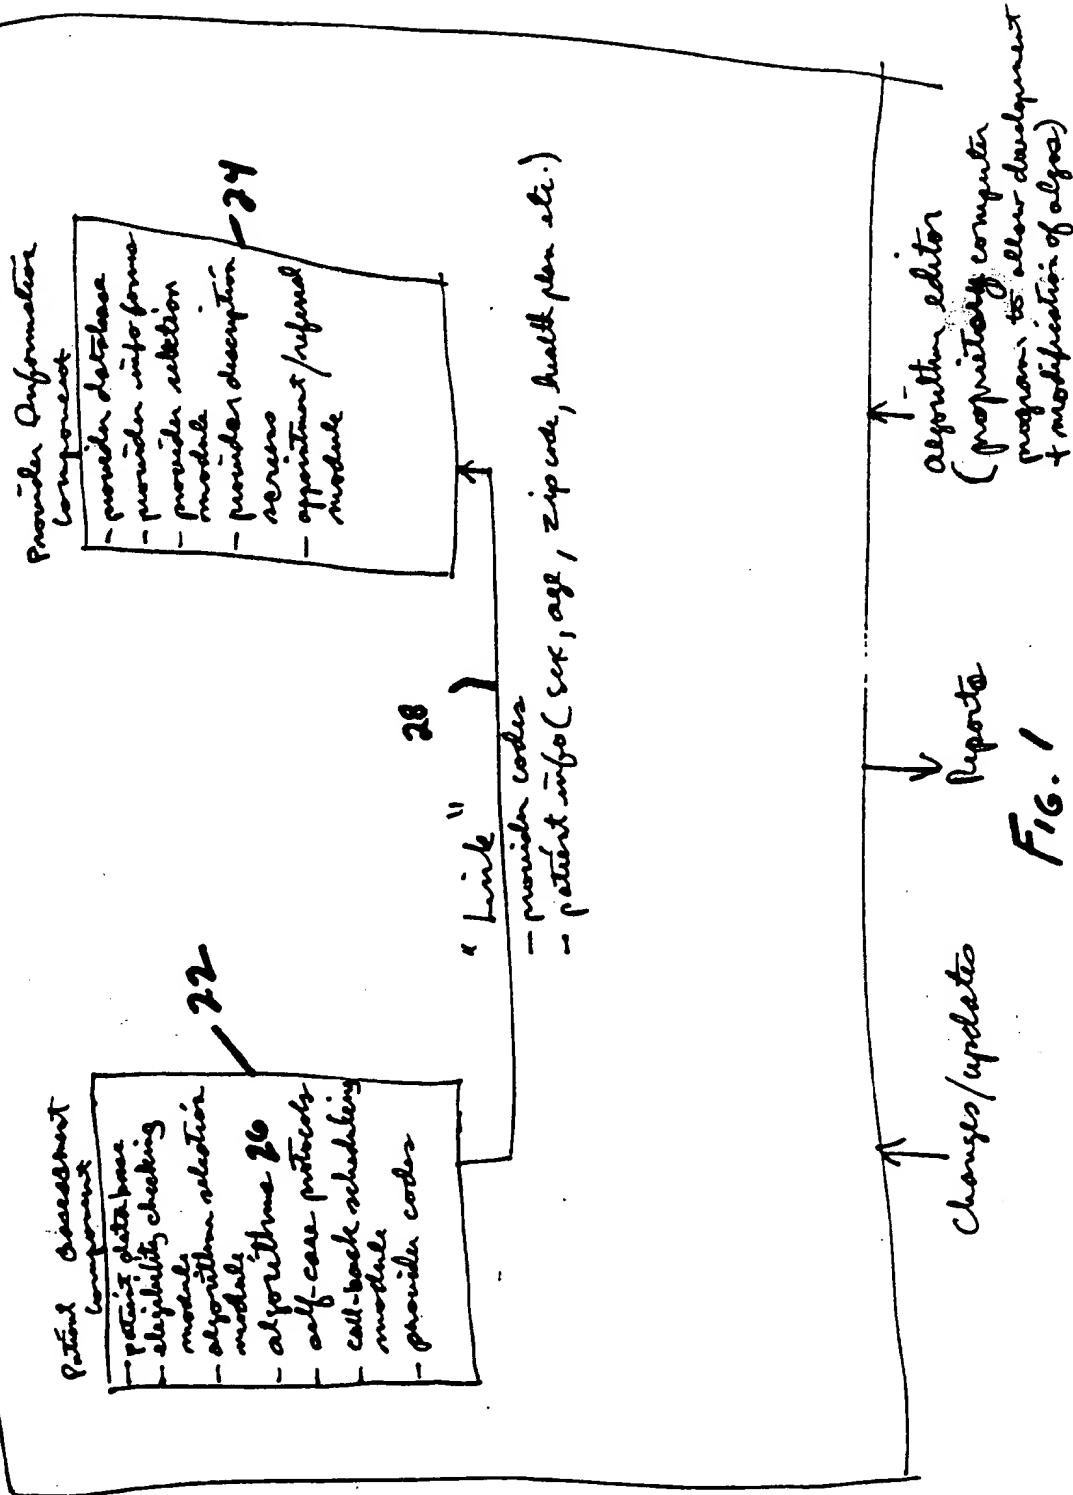 Patient Assessment
Component
- patient database
- eligibility checking
module
- algorithm selection
module
- algorithms 26
- self-care protocols
- call-back scheduling
module
- provider codes
22
Provider Information
Component
- provider database
- provider info forms
- provider selection
module
- provider description
screens
- appointment/referral
module
24
28
"Link"
- provider codes
- patient info (sex, age, zip code, health plan etc.)
Changes/updates
Reports
algorithm editor
(proprietary computer
program to allow development
+ modification of algos)
FIG. 1